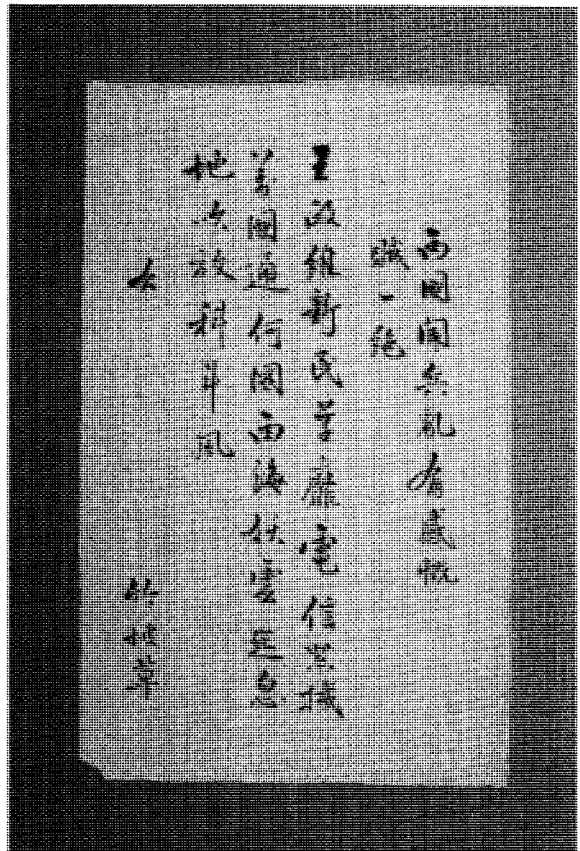 西國聞兵乱有感慨
賦一絶
王政維新民草靡電信器械
萬國通何圖西海妖雲起忽
地吹放科斗風
右
草